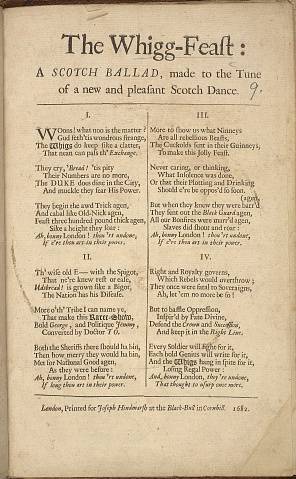 The Whigg-Feast:
A SCOTCH BALLAD, made to the Tune
of a new and pleasant Scotch Dance.
9.
I.
WOons! what noo is the matter?
Gud feth 'tis wondrous strange,
The Whiggs do keep sike a clatter,
That nean can pass th' Exchange.
They cry, 'Bread! 'tis pity
Their Numbers are no more,
The DUKE dous dine in the City,
And muckle they fear His Power.
They begin the awd Trick agen,
And cabal like Old-Nick agen,
Feast three hundred pound thick agen,
Sike a height they soar:
Ah, bonny London! thou'rt undone,
If e're thou art in their power.
II.
Th' wife old E— with the Spigot,
That ne're knew rest or ease,
is grown like a Bigot,
The Nation has his Disease.
More o'th' Tribe I can name ye,
That make this Raree-Show,
Bold George, and Politique Jemmy,
Converted by Doctor TO.
Both the Sheriffs there should ha bin,
Then how merry they would ha bin,
Met for National Good agen,
As they were before:
Ah, bonny London! thou'rt undone,
If long thou art in their power.
III.
More to show us what Ninneys
Are all rebellious Beasts,
The Cuckolds sent in their Guinneys,
To make this Jolly Feast.
Never caring, or thinking,
What Insolence was done,
Or that their Plotting and Drinking
Should e're be oppos'd so soon.
(agen,
But when they knew they were barr'd
They sent out the Black Guard agen,
All our Bonfires were marr'd agen,
Slaves did shout and roar:
Ah, bonny London! thou'rt undone,
If e're thou art in their power.
IV.
Right and Royalty governs,
Which Rebels would overthrow;
They once were fatal to Sovereigns,
Ah, let 'em no more be so!
But to hasste Oppression,
Inspir'd by Fate Divine,
Defend the Crown and Succession,
And keep it in the Right Line.
Every Soldier will fight for it,
Each bold Genius will write for it,
And the Whiggs hang in spite for it,
Losing Regal Power:
And, bonny London, they're undone,
That thought to usurp once more.
London, Printed for Joseph Hindmarsh at the Black-Bull in Cornhill. 1682.